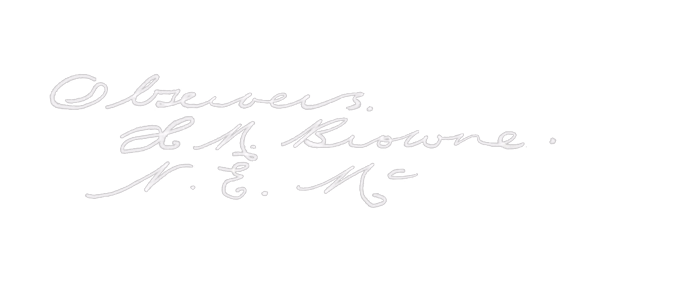 Observers.
H. N. Browne.
N. E. Mc